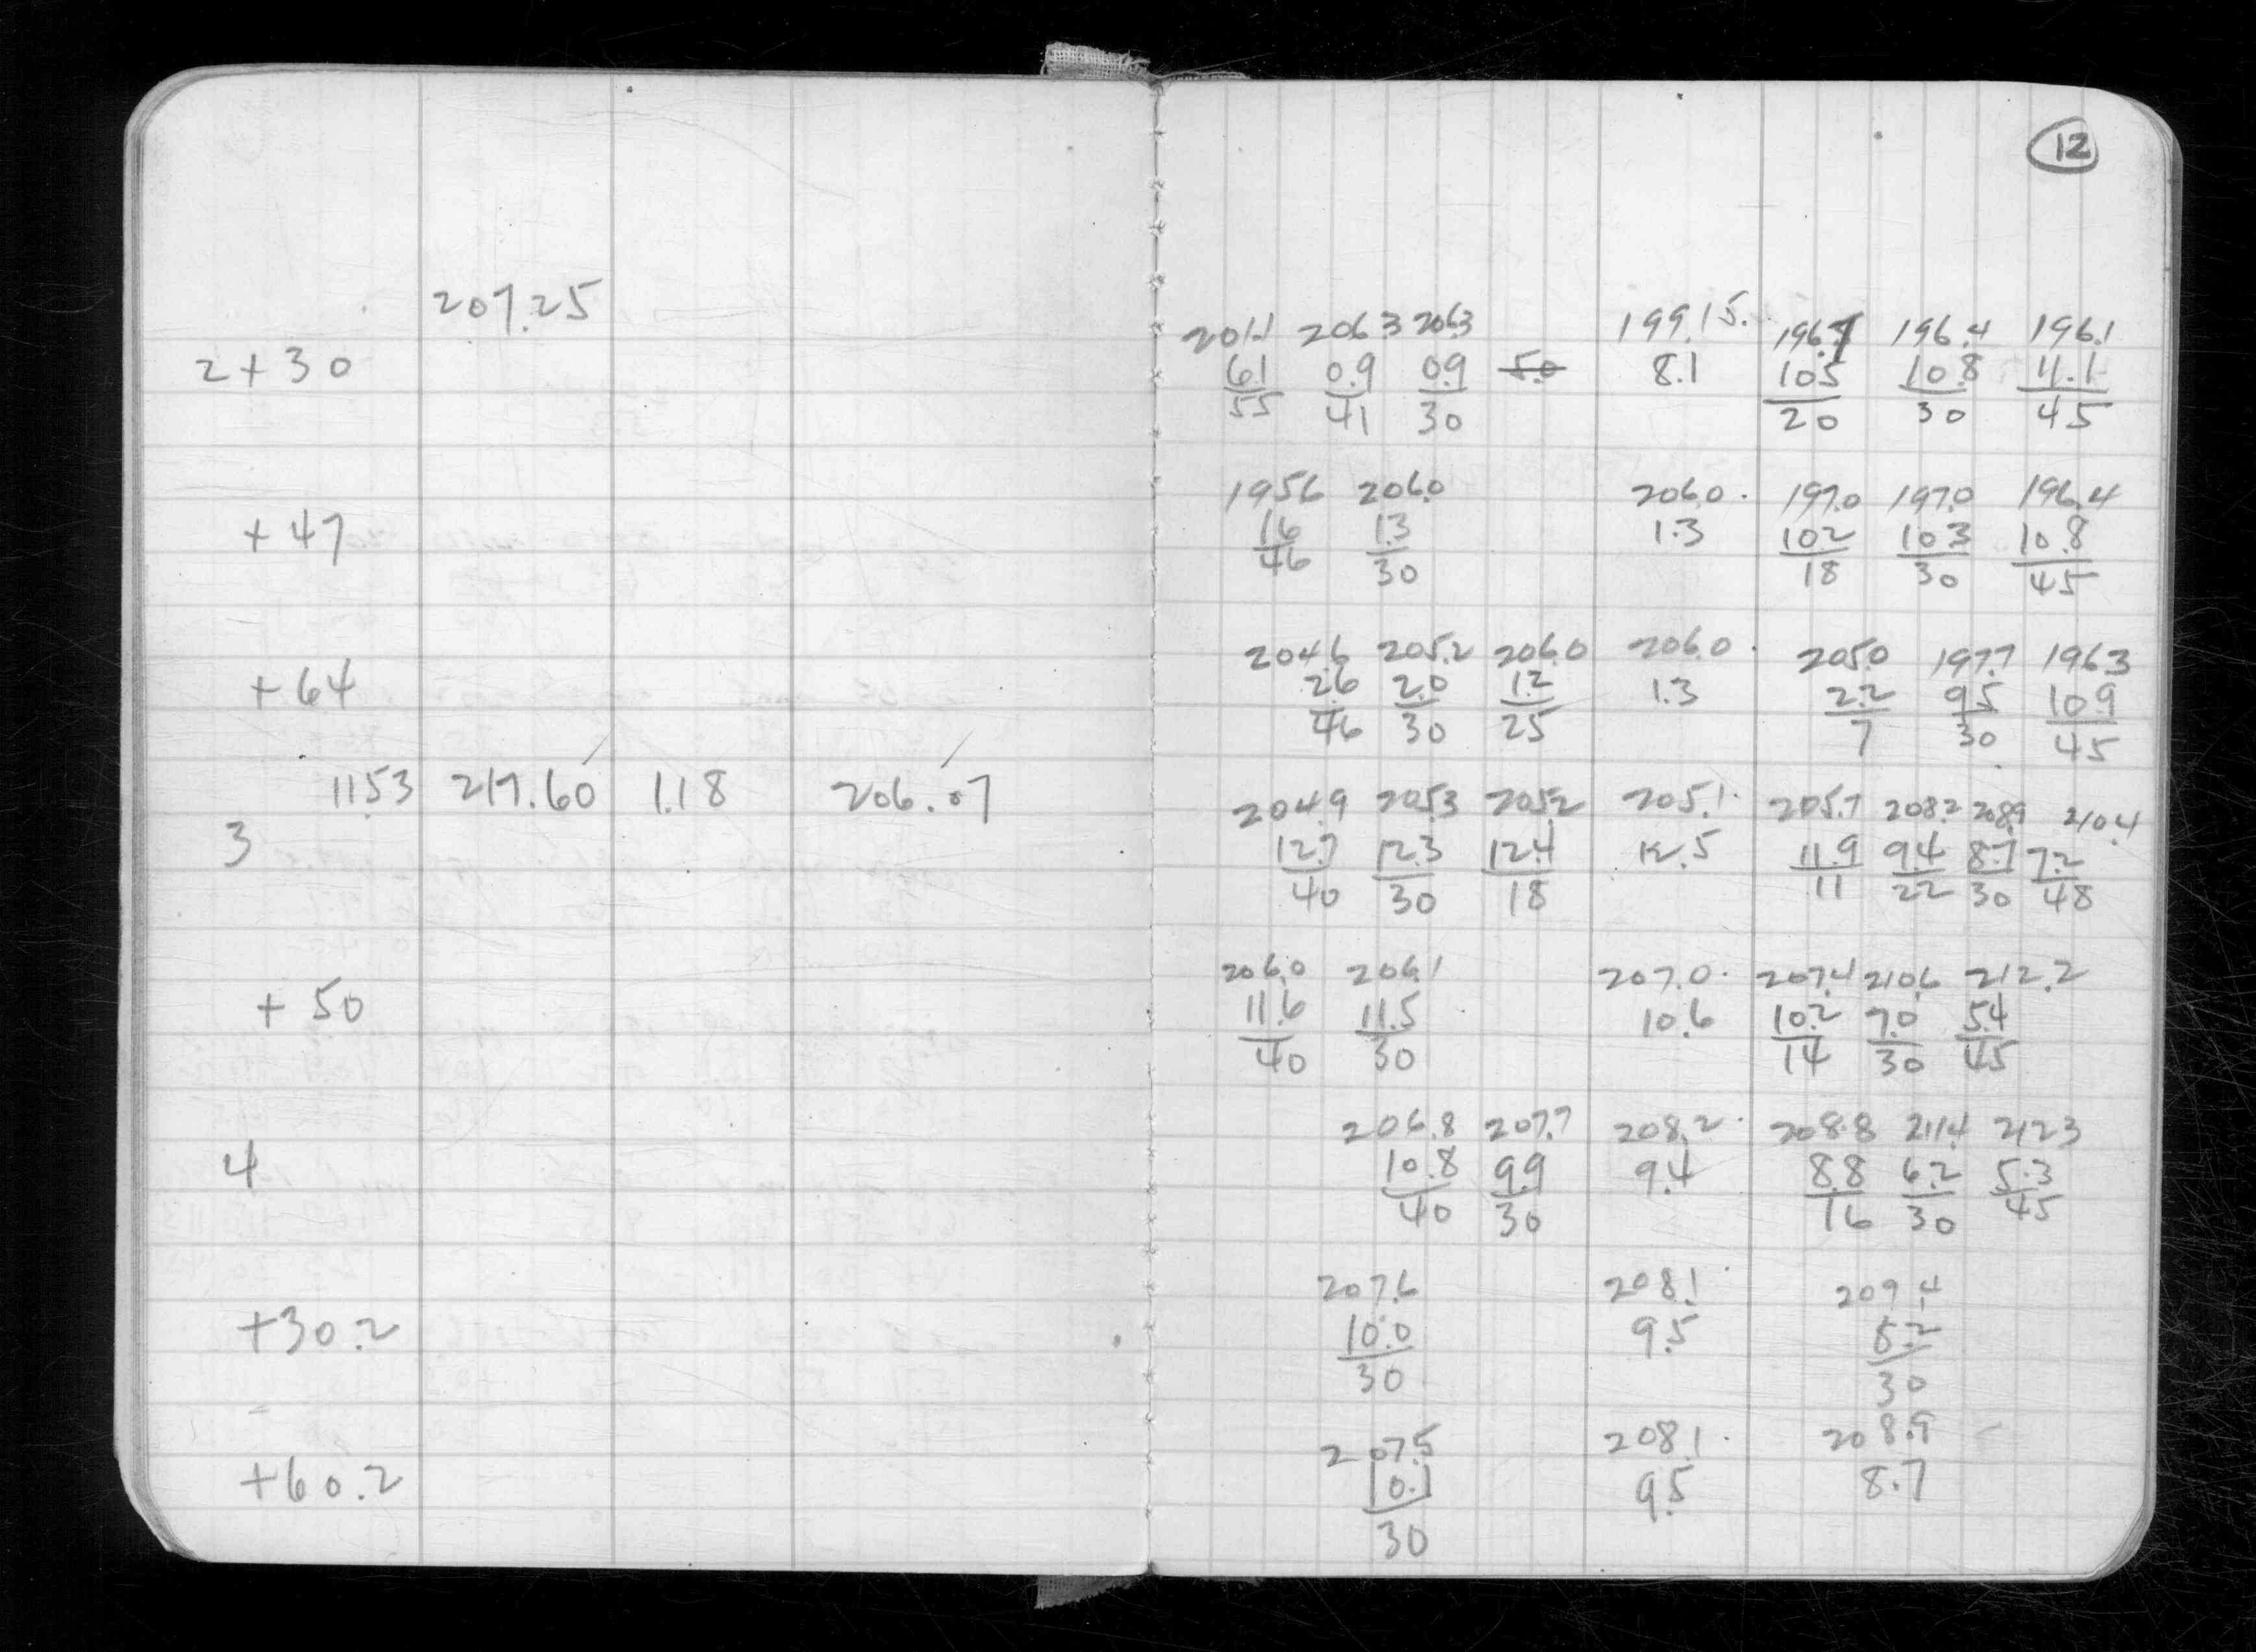 12
207.25
201.1 206.3 206.3 199.15. 196.7 196.4 196.1
2+30 6.1 0.9 0.9 5.0 8.1 10.5 10.8 11.1
55 41 30 20 30 45
195.6 206.0 206.0. 197.0 197.0 196.4
+47 1.6 1.3 1.3 10.2 10.3 10.8
46 30 18 30 45
204.6 205.2 206.0 206.0. 205.0 197.7 196.3
+64 2.6 2.0 1.2 1.3 2.2 9.5 10.9
46 30 25 7 30 45
11.53 217.60 1.18 206.07 204.9 205.3 205.2 205.1. 205.7 208.2 208.9 210.4
3 12.7 12.3 12.4 12.5 11.9 9.4 8.7 7.2
40 30 18 11 22 30 48
206.0 206.1 207.0. 207.4 210.6 212.2
+50 11.6 11.5 10.6 10.2 7.0 5.4
40 30 14 30 45
206.8 207.7 208.2. 208.8 211.4 212.3
4 10.8 9.9 9.4 8.8 6.2 5.3
40 30 16 30 45
207.6 208.1. 209.4
+30.2 10.0 9.5 8.2
30 30
207.5 208.1. 208.9
+60.2 10.1 9.5 8.7
30